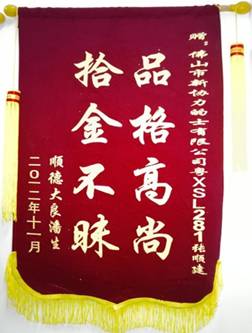 赠：佛山市新协力的士有限公司粤XSL281张顺建
品格高尚
拾金不昧
顺德大良潘生
二〇一二年十一月